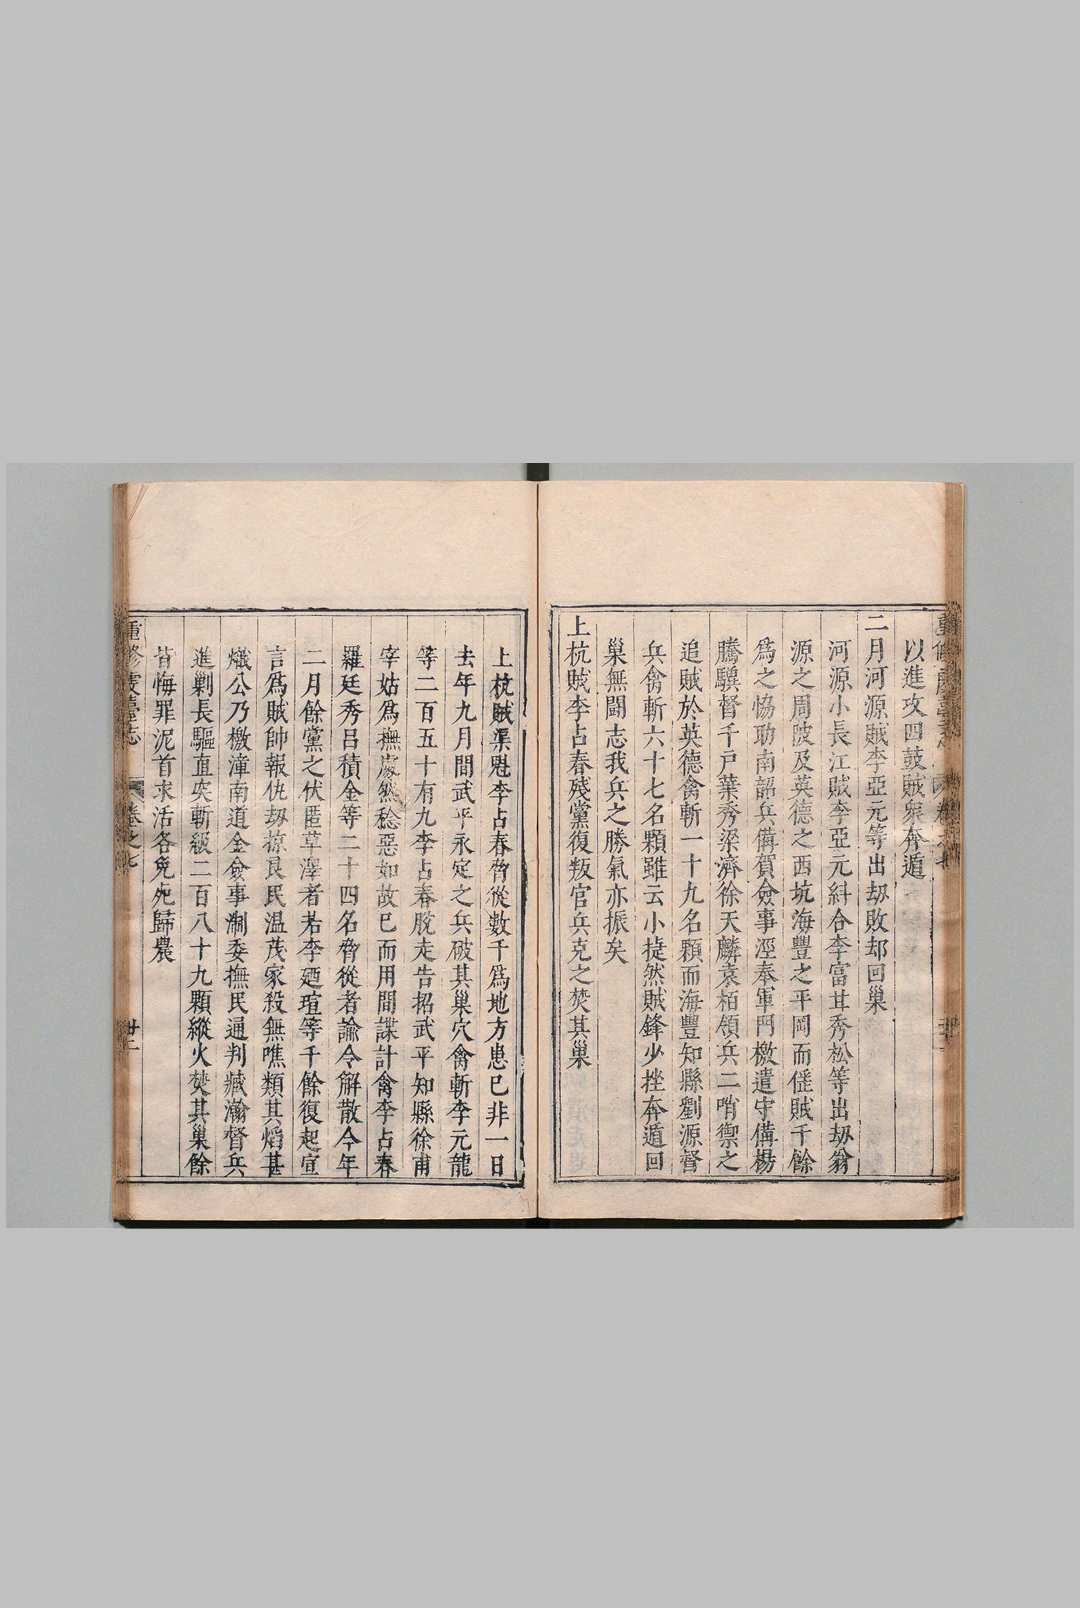 以進攻四鼓賊衆奔遁
二月河源賊李亞元等出刼敗却回巢
河源小長江賊李亞元紏合李富甘秀松等出刼翁
源之周陂及英德之西坑海豐之平岡而偓賊千餘
爲之恊助南韶兵備賀僉事涇奉軍門檄遣守備楊
騰驥督千戸葉秀梁濟徐天麟袁栢領兵二哨禦之
追賊於英德禽斬一十九名顆而海豐知縣劉源督
兵禽斬六十七名顆雖云小捷然賊鋒少挫奔遁回
巢無闘志我兵之勝氣亦振矣
上杭賊李占春殘黨復叛官兵克之焚其巢
上杭賊渠魁李占春脅從數千爲地方患巳非一日
去年九月間武平永定之兵破其巢穴禽斬李元龍
等二百五十有九李占春脫走告招武平知縣徐甫
宰姑爲撫處然稔惡如故巳而用間諜計禽李占春
羅廷秀呂積金等二十四名脅從者諭令解散今年
二月餘黨之伏匿草澤者若李廼瑄等千餘復起宣
言爲賊帥報仇刼掠良民温茂家殺無噍類其熖甚
熾公乃檄漳南道金僉事淛委撫民通判臧瀚督兵
進剿長驅直突斬級二百八十九顆縱火焚其巢餘
皆悔罪泥首求活各免死歸農
重修虔臺志
卷之七
廿二